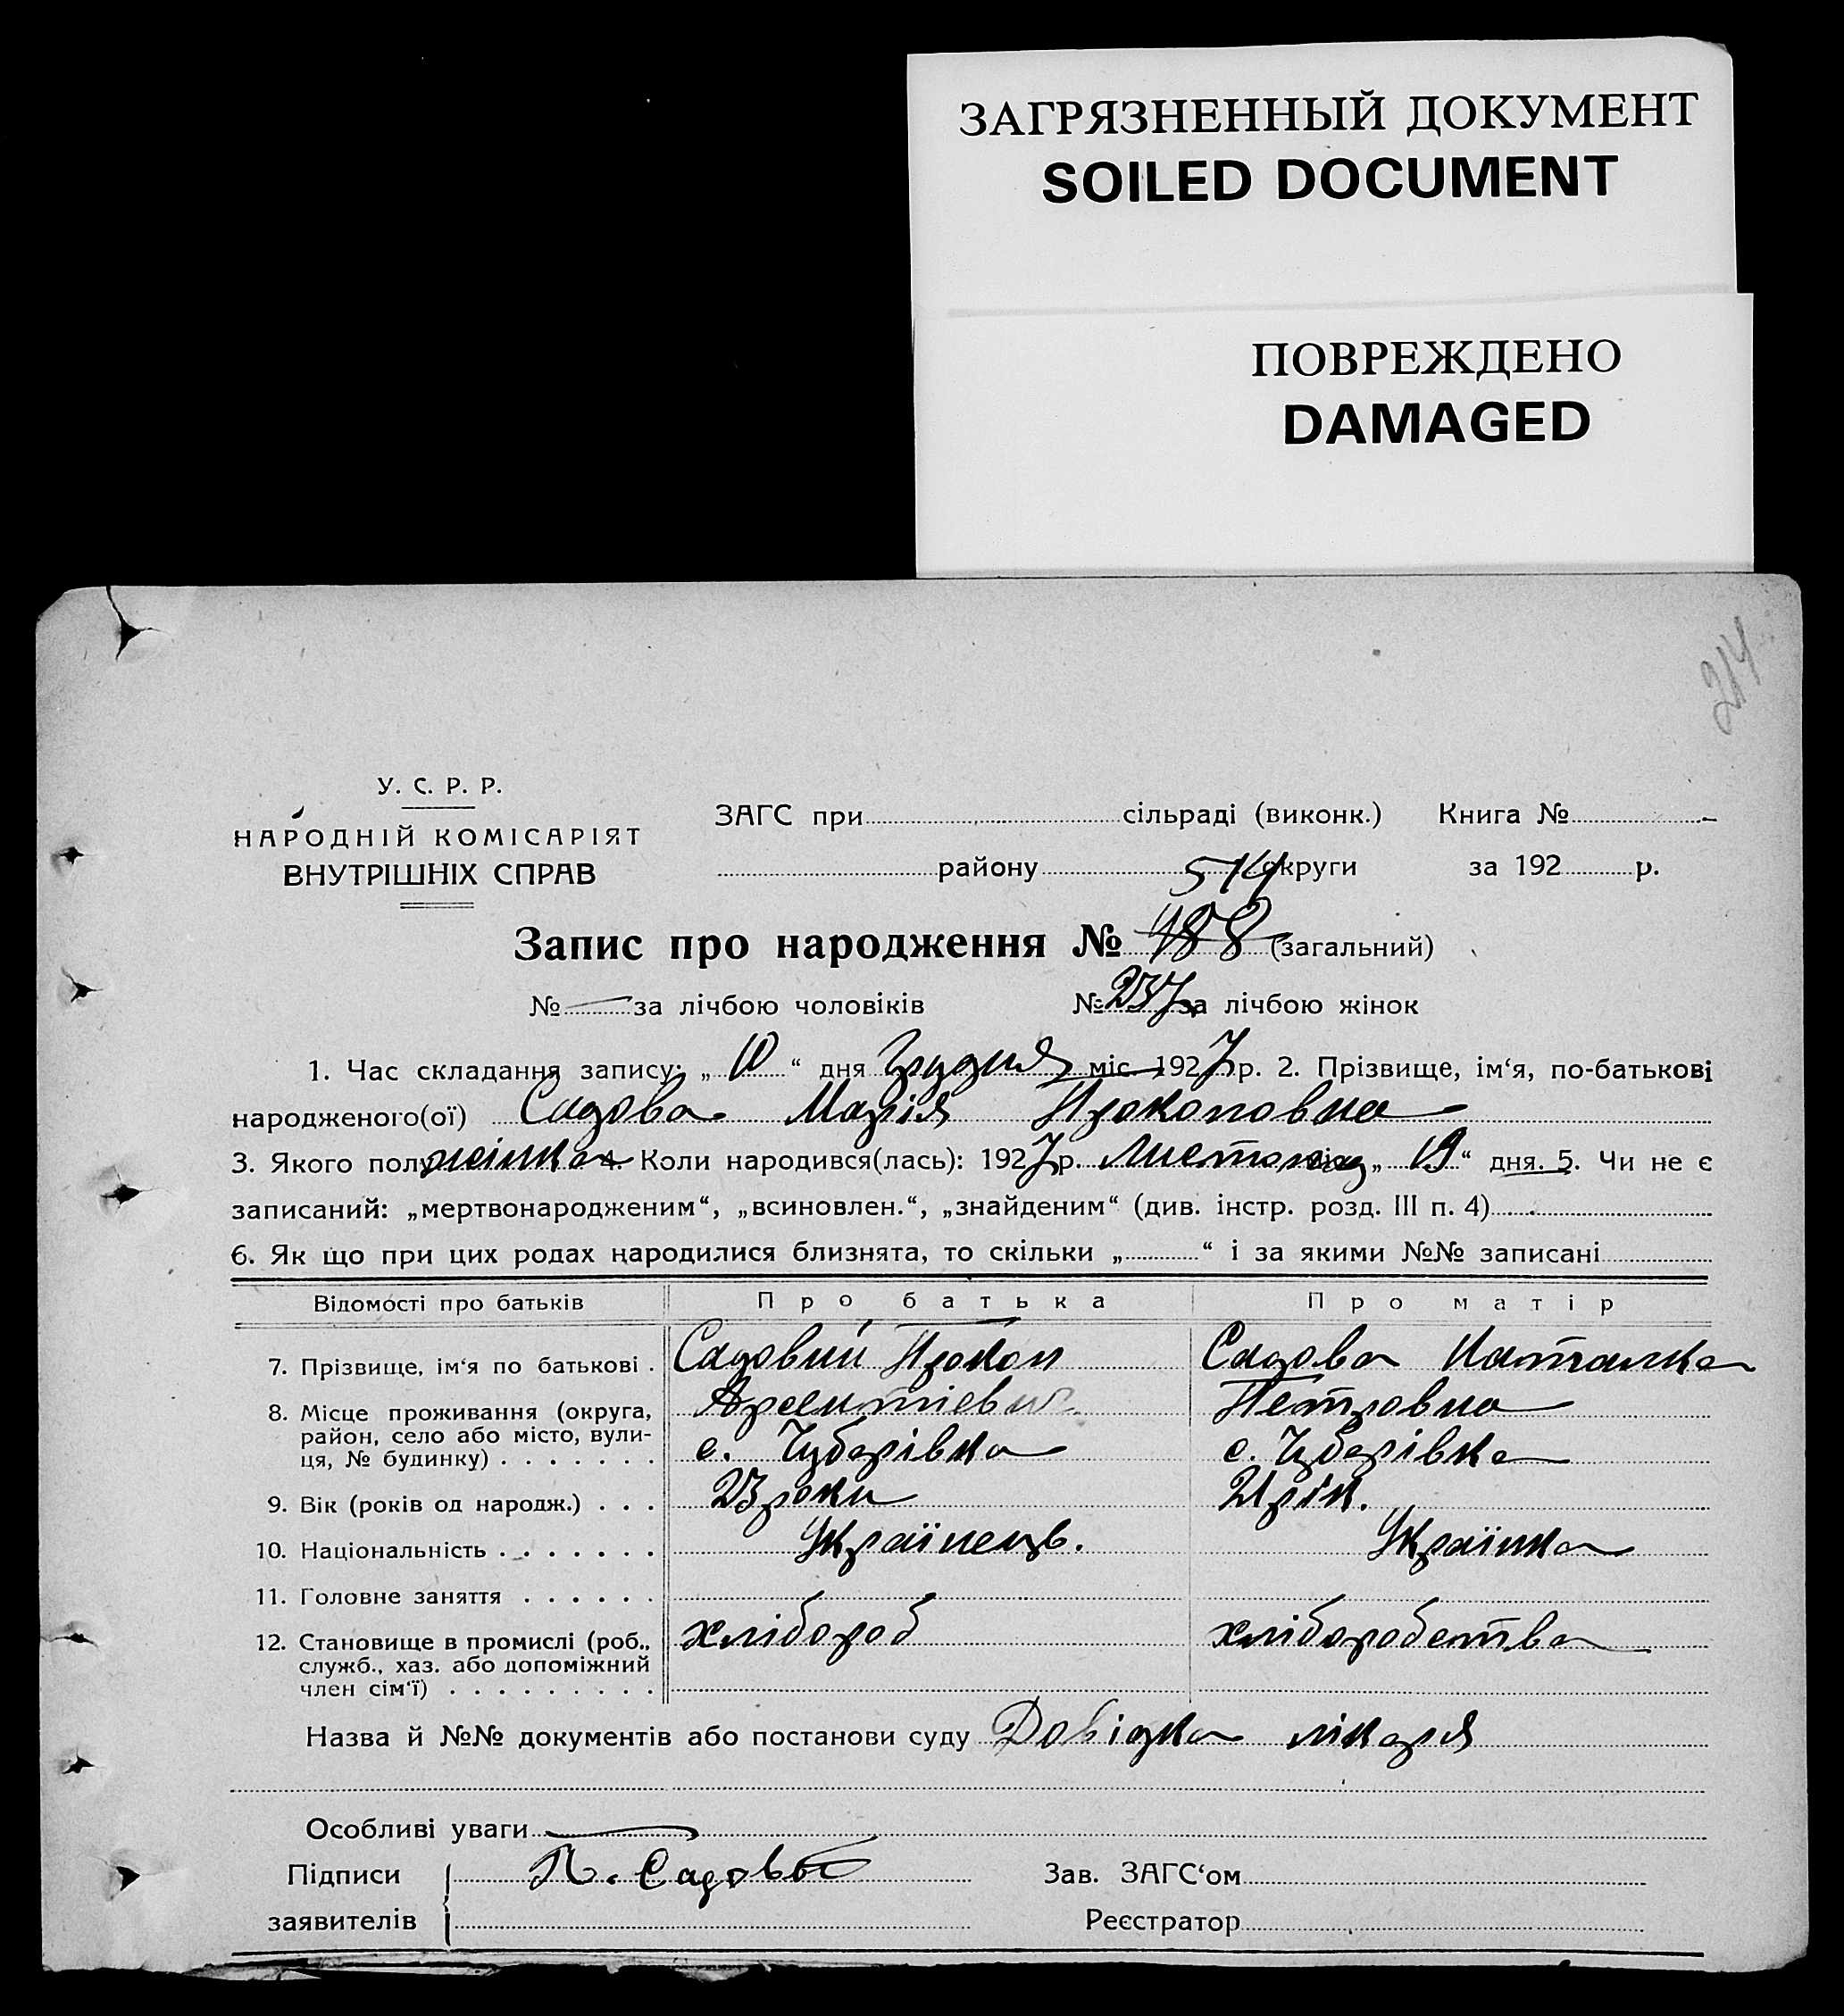 ЗАГРЯЗНЕННЫЙ ДОКУМЕНТ
SOILED DOCUMENT
ПОВРЕЖДЕНО
DAMAGED
214
У. С. Р. Р.
НАРОДНІЙ КОМІСАРІЯТ
ВНУТРІШНІХ СПРАВ
ЗАГС при сільраді (виконк.) Книга №
району округи за 192 р.
514
Запис про народження № 488 (загальний)
№ — за лічбою чоловіків № 237 за лічбою жінок
1. Час складання запису: „10“ дня Грудня міс. 1927 р. 2. Прізвище, ім‘я, по-батькові
народженого(ої) Садова Марія Прокоповна
3. Якого полу жінка 4. Коли народився(лась): 1927 р. Листопад „19“ дня. 5. Чи не є
записаний: „мертвонародженим“, „всиновлен.“, „знайденим“ (див. інстр. розд. III п. 4)
6. Як що при цих родах народилися близнята, то скільки „ “ і за якими №№ записані
Відомості про батьків Про батька Про матір
7. Прізвище, ім‘я по батькові . Садовий Прокоп Садова Наталка
8. Місце проживання (округа, Арсентіевич Петровна
район, село або місто, вули-
ця, № будинку) . . . . . . . с. Чубарівка с. Чубарівка
9. Вік (років од народж.) . . . 23 роки 21 рік.
10. Національність . . . . . . . Українець. Українка
11. Головне заняття . . . . . .
12. Становище в промислі (роб., хлібороб хліборобства
служб., хаз. або допоміжний
член сім‘ї) . . . . . . . . .
Назва й №№ документів або постанови суду Довідка лікаря
Особливі уваги —
Підписи П. Садовы Зав. ЗАГС‘ом
заявителів Реєстратор